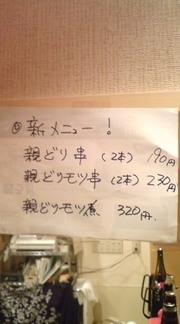 ◎新メニュー！
親どり串（2本）190円
親どりモツ串（2本）230円
親どりモツ煮 320円.